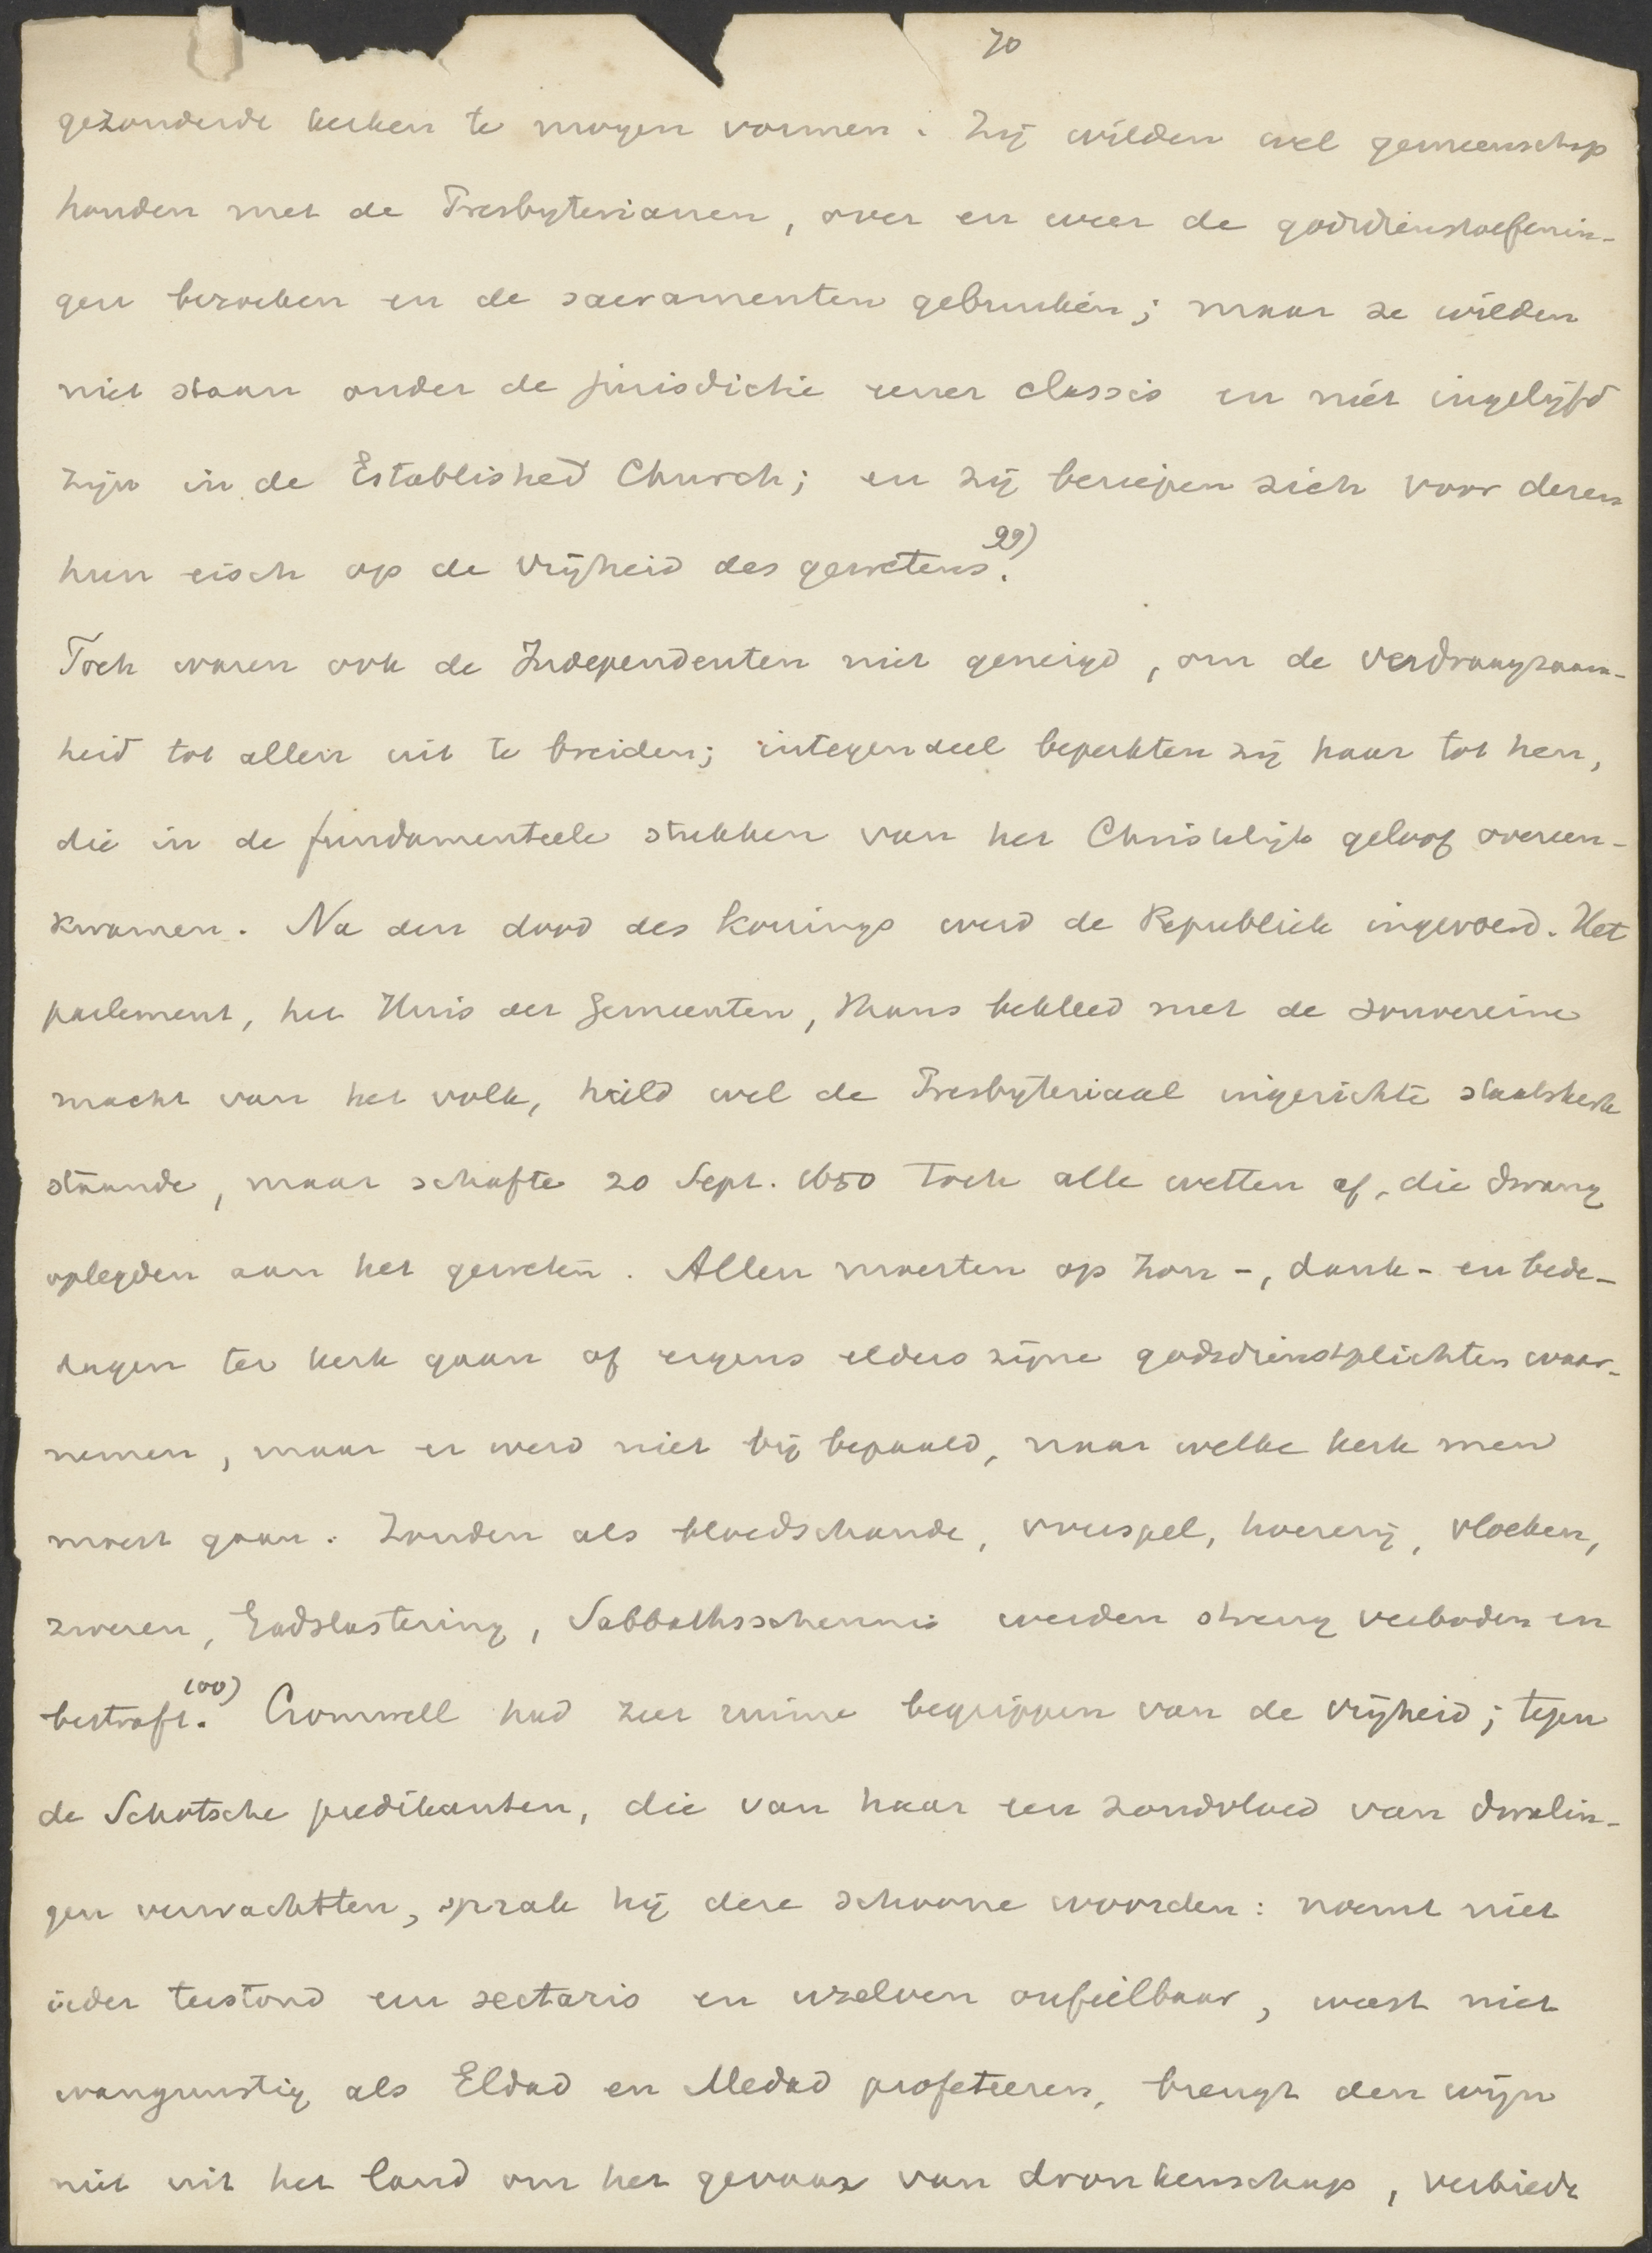 70
gezonderde kerken te mogen vormen. Zij wilden wel gemeenschap
houden met de Presbyterianen, over en weer de godsdienstoefenin-
gen bezoeken en de sacramenten gebruiken; maar ze wilden
niet staan onder de jurisdictie eener classis en niet ingelijfd
zijn in de Established Church; en zij beriepen zich voor dezen
hun eisch op de vrijheid des gewetens. 99)
Toch waren ook de Independenten niet geneigd, om de verdraagzaam-
heid tot allen uit te breiden; integendeel beperkten zij haar tot hen,
die in de fundamenteele stukken van het Christelijk geloof overeen-
kwamen. Na den dood des Konings werd de Republiek ingevoerd. Het
parlement, het Huis der Gemeenten, thans bekleed met de souvereine
macht van het volk, hield wel de Presbyteriaal ingerichte staatskerk
staande, maar schafte 20 Sept. 1650 toch alle wetten af, die dwang
oplegden aan het geweten. Allen moesten op Zon-, dank- en bede-
dagen ter kerk gaan of ergens elders zijne godsdienstplichten waar-
nemen, maar er werd niet bij bepaald, naar welke kerk men
moest gaan. Zonden als bloedschande, overspel, hoererij, vloeken,
zweren, Godslastering, Sabbathsschennis werden streng verboden en
bestraft. 100) Cromwell had zeer ruime begrippen van de vrijheid; tegen
de Schotsche predikanten, die van haar een zondvloed van dwalin-
gen verwachtten, sprak hij deze schoone woorden: noemt niet
ieder terstond een sectaris en uzelven onfeilbaar, weest niet
wangunstig als Eldad en Medad profeteeren, brengt den wijn
niet uit het land om het gevaar van dronkenschap, verbiedt